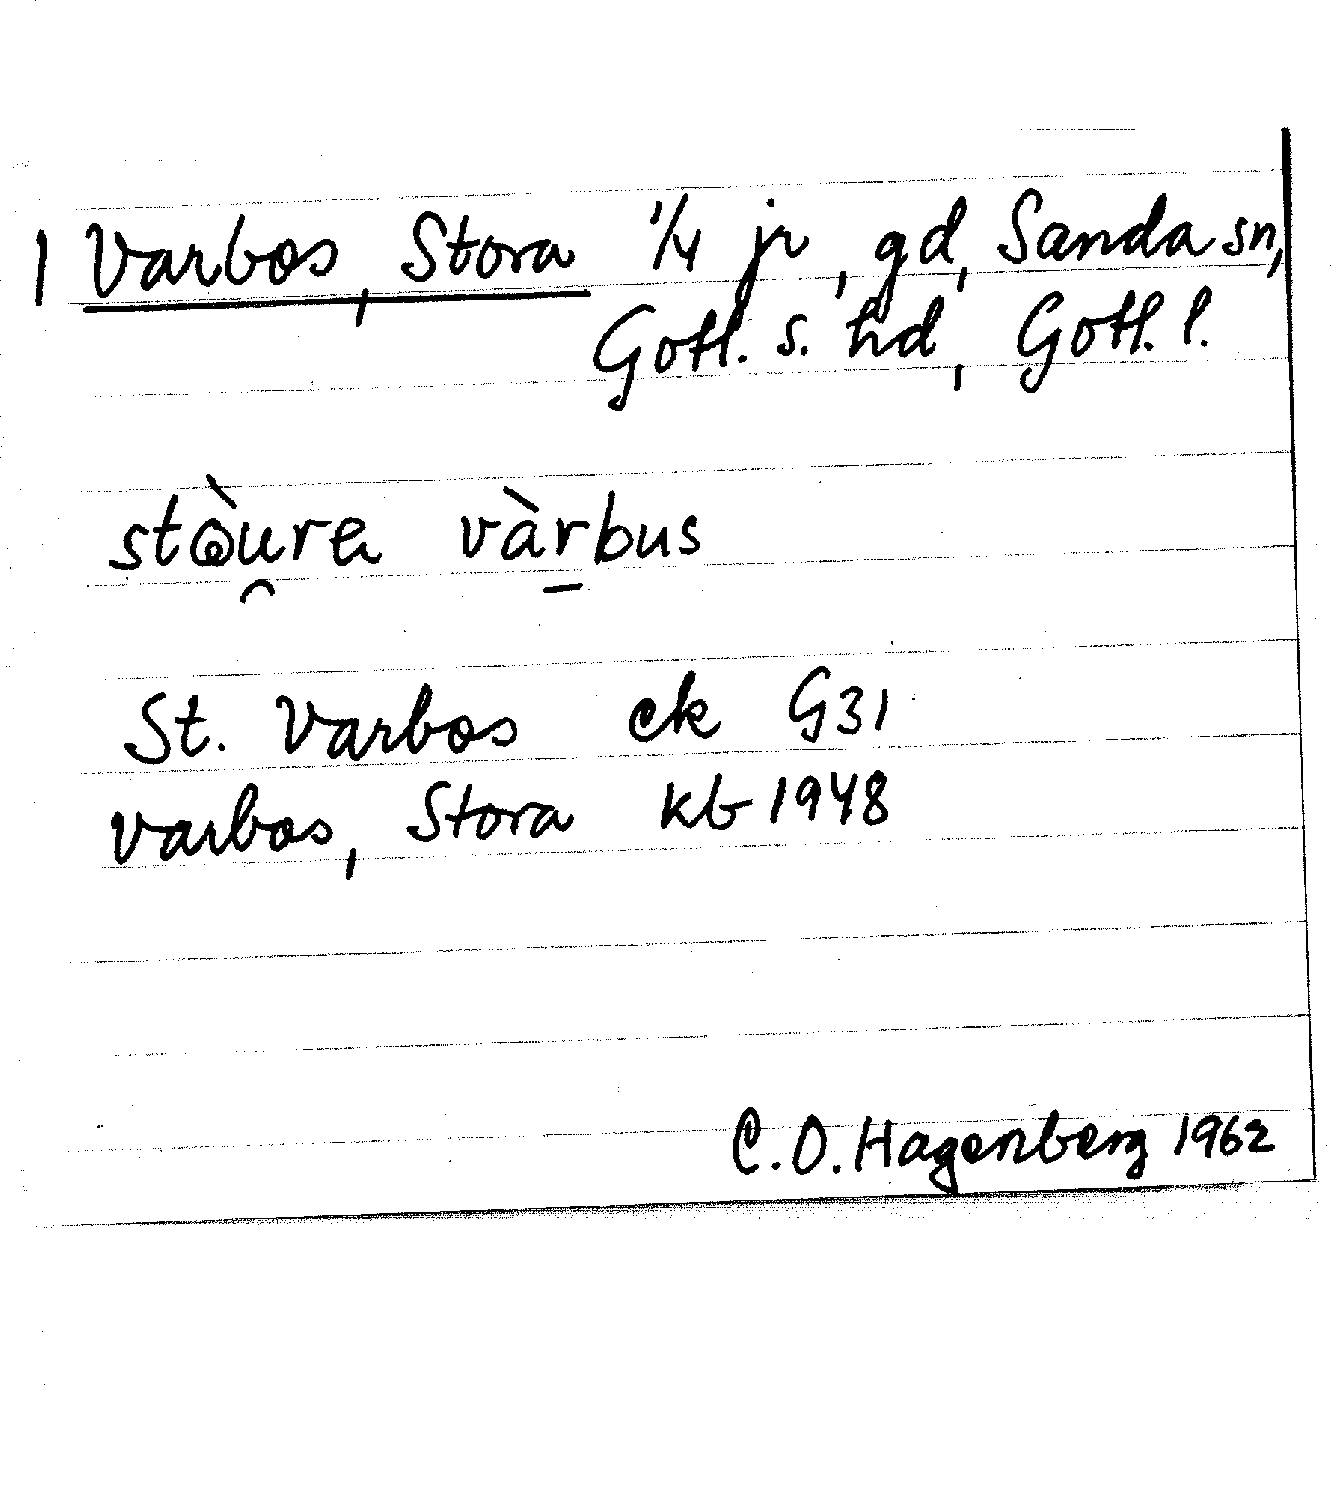 1 Varbos, Stora 1/4 jr, gd, Sanda sn,
Gotl. s. hd, Gotl. l.
stò̀u̯re vàr̠bus
St. Varbos ek G31
Varbos, Stora kb 1948
C. O. Hagenberg 1962